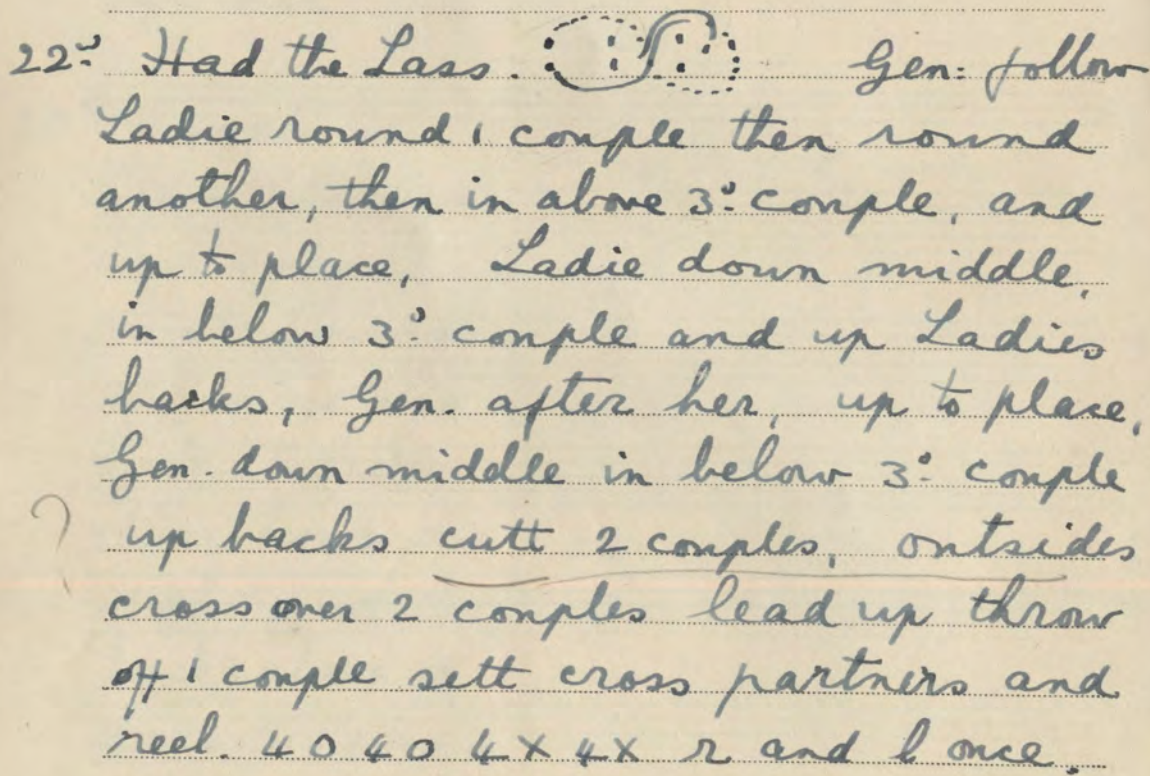 22d Had the Lass. Gen: follow
Ladie round 1 couple then round
another, then in above 3d couple, and
up to place, Ladie down middle,
in below 3d couple and up Ladies
backs, Gen. after her, up to place,
Gen. down middle in below 3d couple
? up backs cutt 2 couples, outsides
cross over 2 couples lead up throw
off 1 couple sett cross partners and
reel. 4 O 4 O 4 X 4 X r and l once.